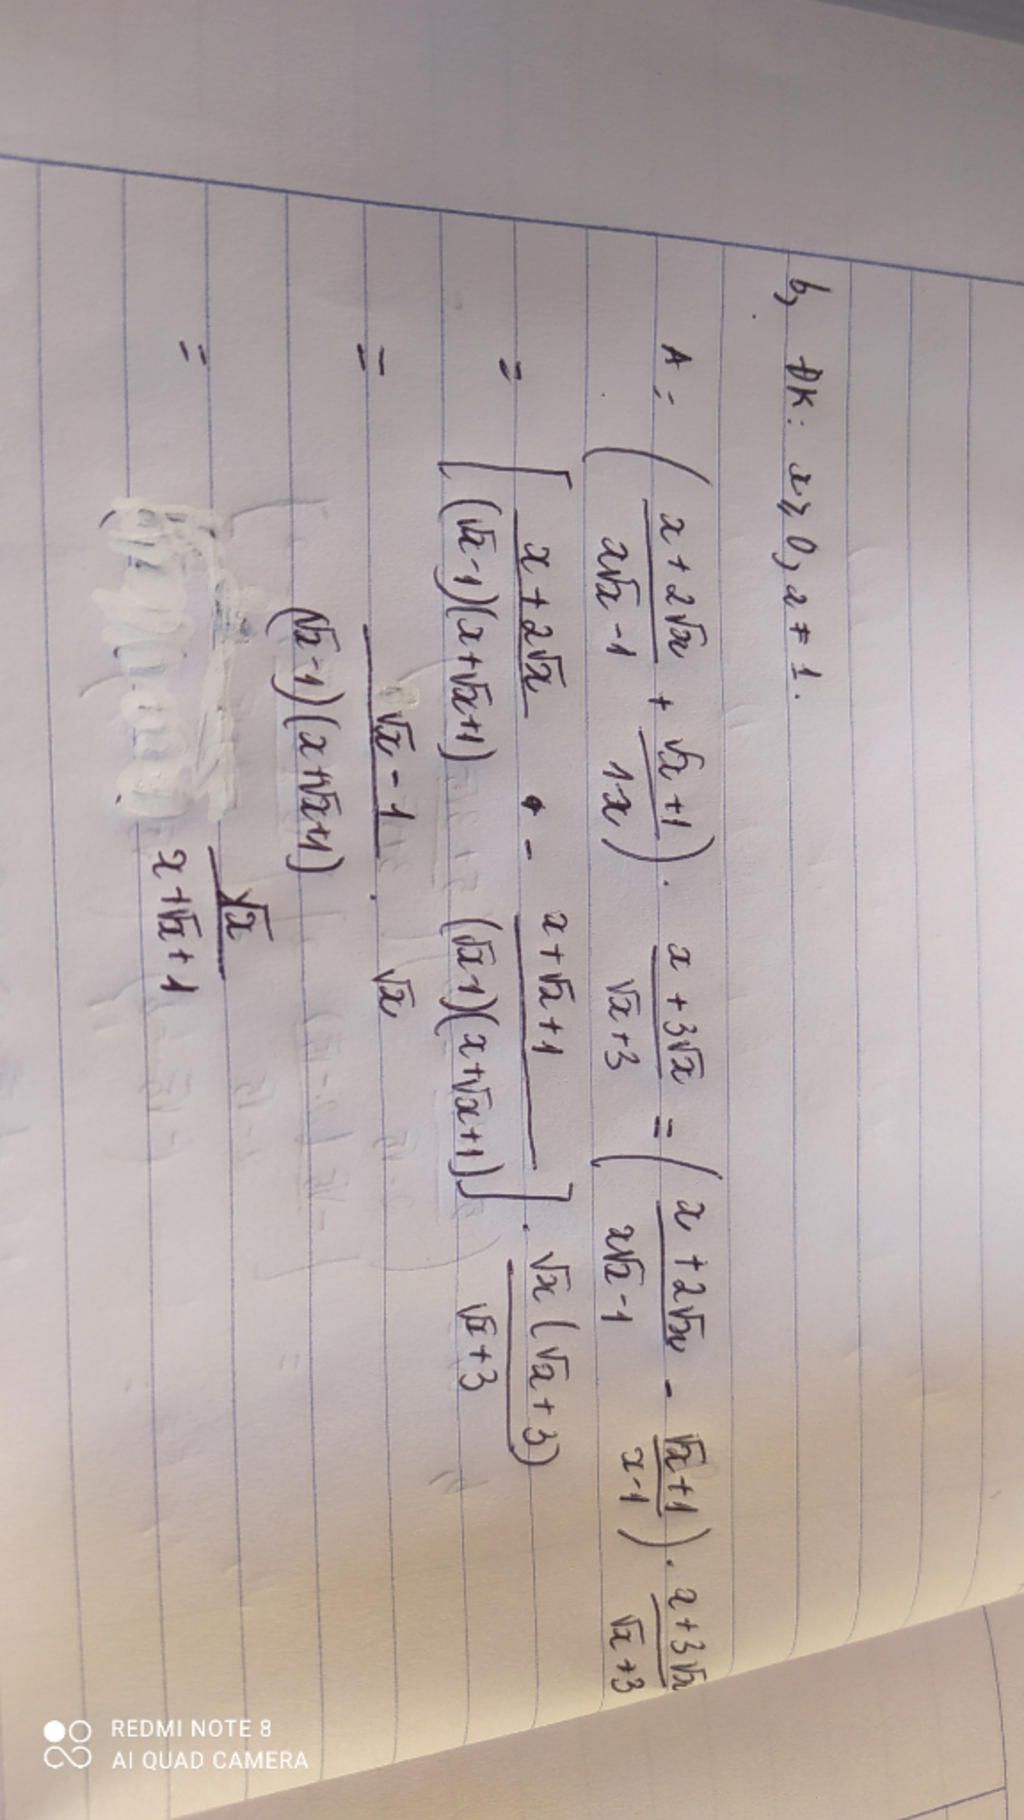 b, ĐK: x ≥ 0, x ≠ 1.
A = ( (x + 2√x)/(x√x - 1) + (√x + 1)/(1 x) ) . (x + 3√x)/(√x + 3) = ( (x + 2√x)/(x√x - 1) - (√x + 1)/(x - 1) ) . (x + 3√x)/(√x + 3)
= [ (x + 2√x)/((√x - 1)(x + √x + 1)) - (x + √x + 1)/((√x - 1)(x + √x + 1)) ] . √x(√x + 3)/(√x + 3)
= (√x - 1)/((√x - 1)(x + √x + 1)) . √x
= √x/(x + √x + 1)
REDMI NOTE 8
AI QUAD CAMERA